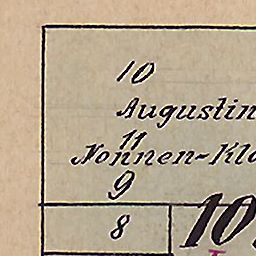 10
Augustin
11
Nonnen-Klo
9
8
10